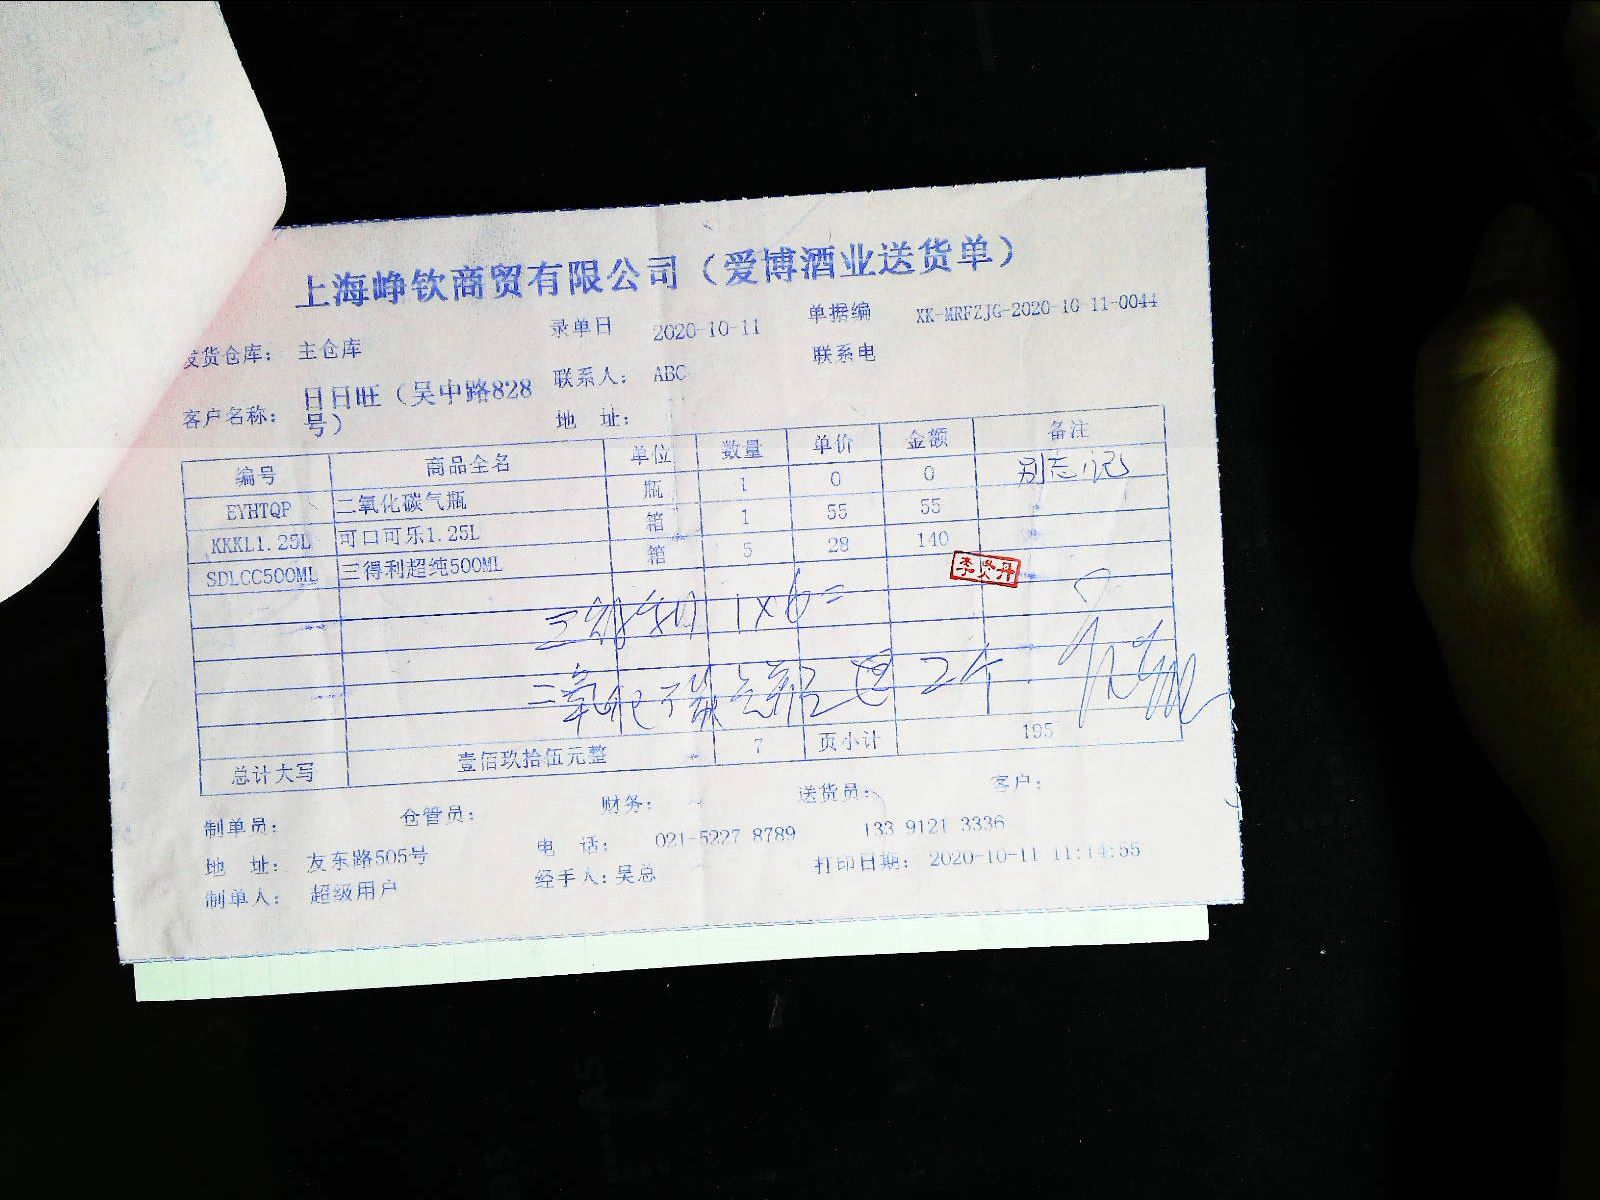 上海峥钦商贸有限公司（爱博酒业送货单）
录单日 2020-10-11 单据编 XK-MRFZJG-2020-10-11-0044
发货仓库： 主仓库 联系人： ABC 联系电
客户名称： 日日旺（吴中路828号） 地 址：
编号 商品全名 单位 数量 单价 金额 备注
EYHTQP 二氧化碳气瓶 瓶 1 0 0 别忘记
KKKL1.25L 可口可乐1.25L 箱 1 55 55
SDLCC500ML 三得利超纯500ML 箱 5 28 140
1×6=
二氧化碳气瓶 2个
总计大写 壹佰玖拾伍元整 7 页小计 195
制单员： 仓管员： 财务： 送货员： 客户：
地 址： 友东路505号 电 话： 021-5227 8789 133 9121 3336
制单人： 超级用户 经手人：吴总 打印日期： 2020-10-11 11:14:55